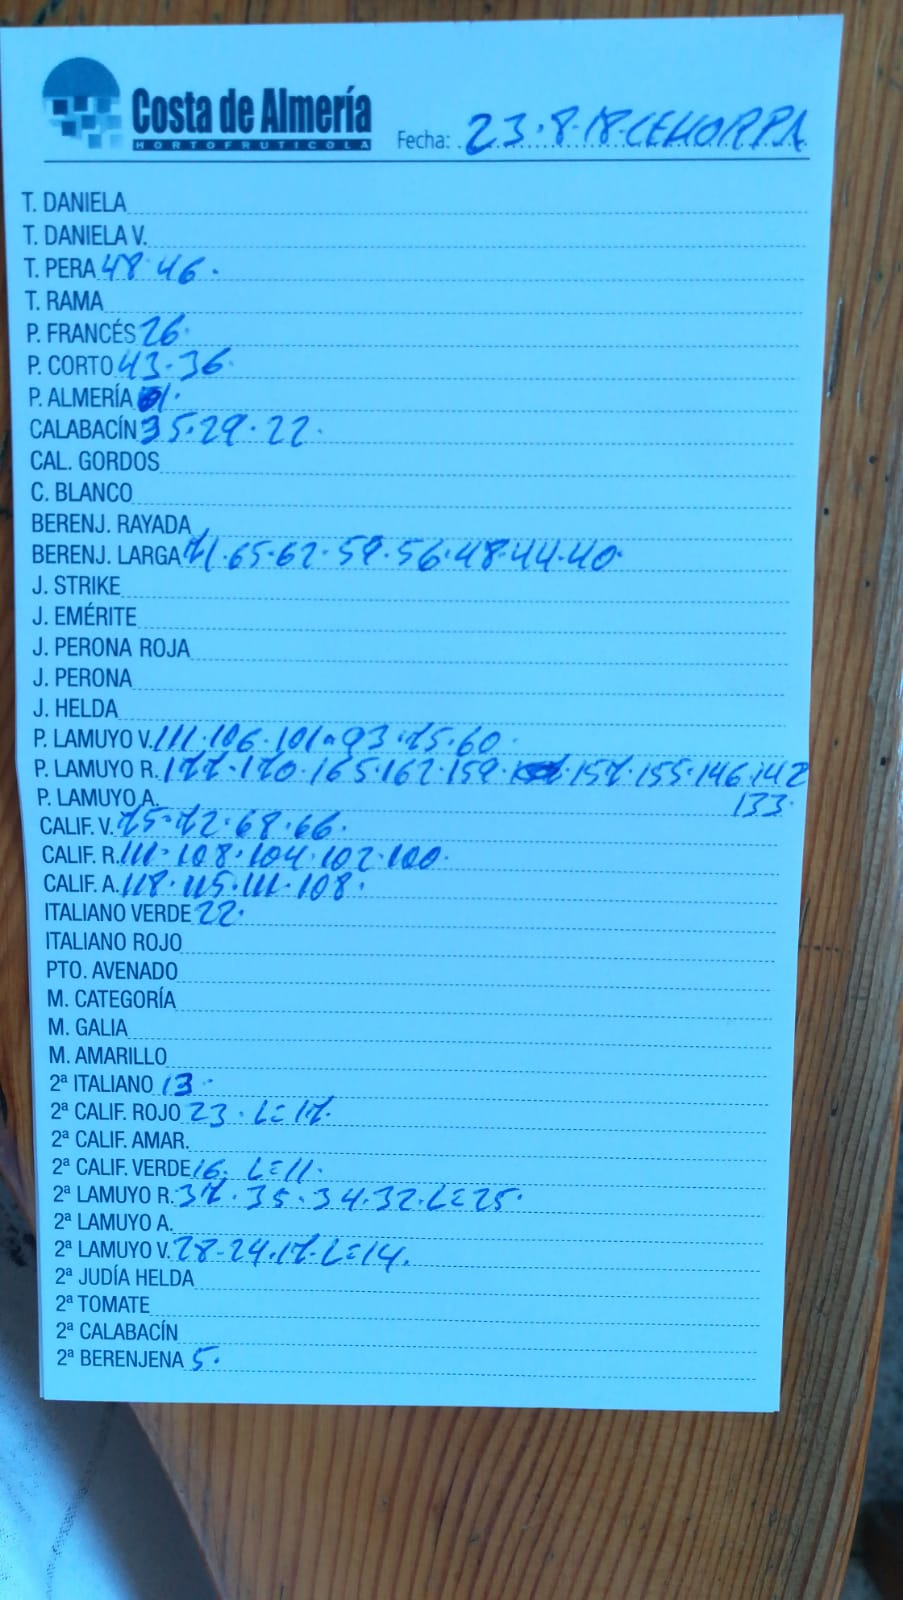 Costa de Almería
HORTOFRUTICOLA
Fecha: 23·8·18·CEHORPA
T. DANIELA
T. DANIELA V.
T. PERA 48 46·
T. RAMA
P. FRANCÉS 26·
P. CORTO 43·36·
P. ALMERÍA
CALABACÍN 35·29·22·
CAL. GORDOS
C. BLANCO
BERENJ. RAYADA
BERENJ. LARGA 71·65·62·59·56·48·44·40·
J. STRIKE
J. EMÉRITE
J. PERONA ROJA
J. PERONA
J. HELDA
P. LAMUYO V. 111·106·101·93·75·60·
P. LAMUYO R. 177·170·165·162·159·157·155·146·142
133·
P. LAMUYO A.
CALIF. V. 75·72·68·66·
CALIF. R. 111·108·104·102·100·
CALIF. A. 118·115·111·108·
ITALIANO VERDE 22·
ITALIANO ROJO
PTO. AVENADO
M. CATEGORÍA
M. GALIA
M. AMARILLO
2ª ITALIANO 13·
2ª CALIF. ROJO 23·L=17·
2ª CALIF. AMAR.
2ª CALIF. VERDE 16·L=11·
2ª LAMUYO R. 37·35·34·32·L=25·
2ª LAMUYO A.
2ª LAMUYO V. 28·24·17·L=14.
2ª JUDÍA HELDA
2ª TOMATE
2ª CALABACÍN
2ª BERENJENA 5·